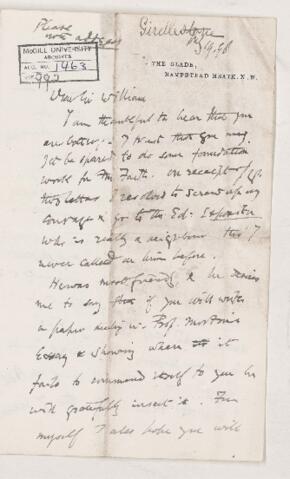 Please
note address
Girdlestone
McGILL UNIVERSITY
ARCHIVES
ACC. NO. 1463
THE GLADE,
HAMPSTEAD HEATH, N.W.
Dear Sir William
I am thankful to hear that you
are better. I trust that you may
be spared to do some foundation
work for the Faith. On receipt of
this letter I resolved to screw up my
courage & go to the Ed: Expositor
who is really a neighbour tho' I
never called on him before.
He was most friendly & he desires
me to say if you will write
a paper Prof.
Essay & showing where it
fails to commend itself to you he
will gratefully insert it. For
myself I also hope you will